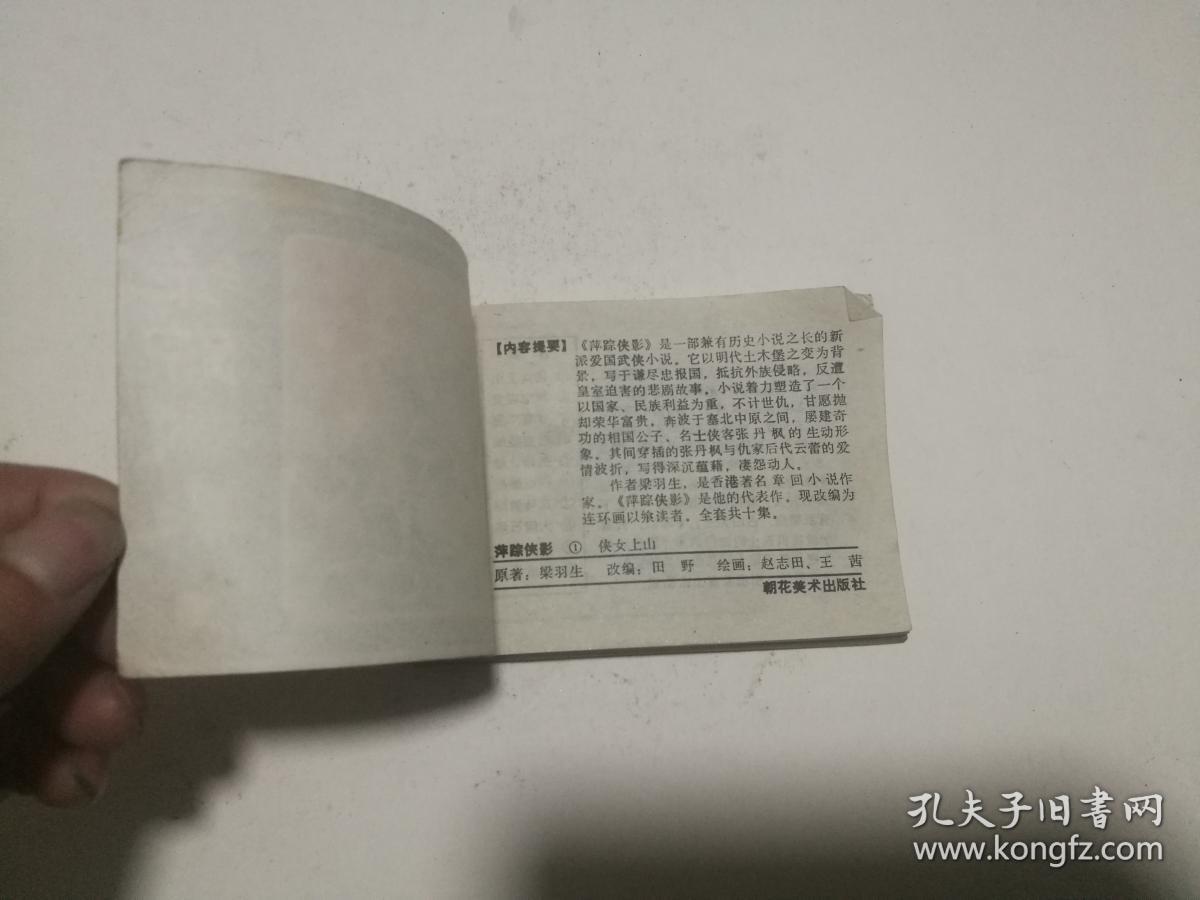 【内容提要】《萍踪侠影》是一部兼有历史小说之长的新
派爱国武侠小说。它以明代土木堡之变为背
景，写于谦尽忠报国，抵抗外族侵略，反遭
皇室迫害的悲剧故事。小说着力塑造了一个
以国家、民族利益为重，不计世仇，甘愿抛
却荣华富贵，奔波于塞北中原之间，屡建奇
功的相国公子、名士侠客张丹枫的生动形
象。其间穿插的张丹枫与仇家后代云蕾的爱
情波折，写得深沉蕴藉，凄怨动人。
作者梁羽生，是香港著名章回小说作
家。《萍踪侠影》是他的代表作。现改编为
连环画以飨读者。全套共十集。
萍踪侠影 ① 侠女上山
原著：梁羽生 改编：田野 绘画：赵志田、王茜
朝花美术出版社
孔夫子旧书网
www.kongfz.com